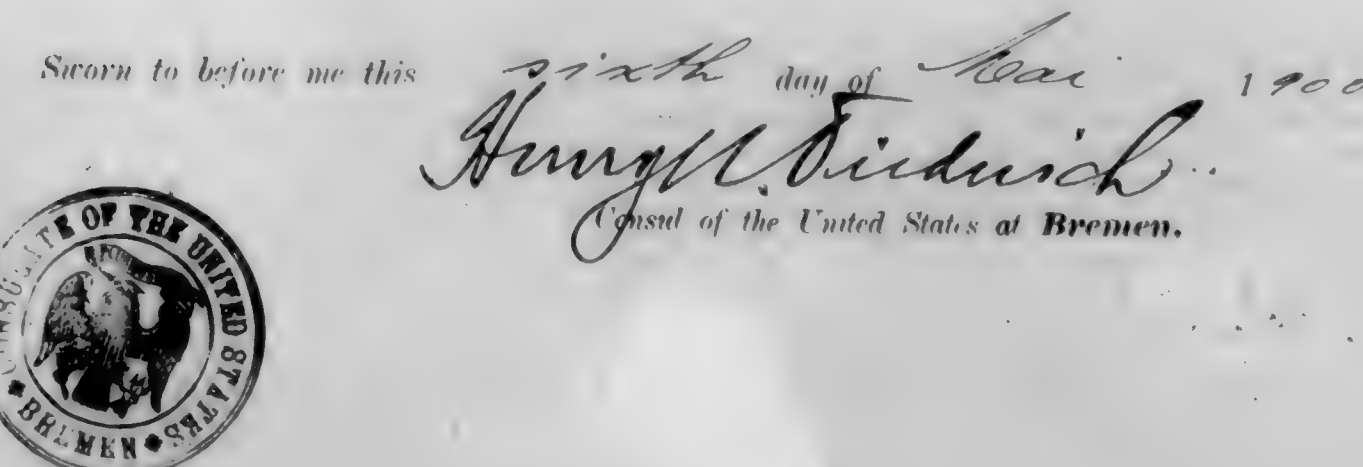 Sworn to before me this sixth day of Mai 1900
Henry W. Diederich
Consul of the United States at Bremen.
CONSULATE OF THE UNITED STATES
BREMEN